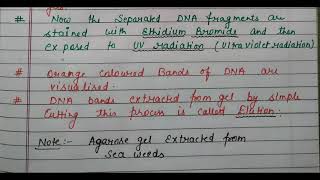 gel.
# Now the Separated DNA fragments are
stained with Ethidium Bromide and then
exposed to UV radiation (Ultraviolet radiation)
# Orange Coloured Bands of DNA are
visualised.
# DNA bands extracted from gel by simple
Cutting this process is called Elution.
Note:- Agarose gel Extracted from
Sea weeds